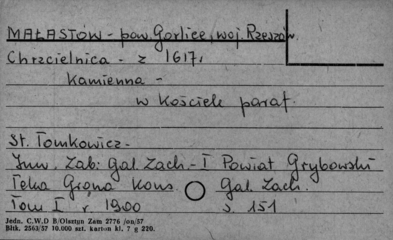 MAŁASTÓW - pow. Gorlice, woj. Rzeszów.
Chrzcielnica - z 1617,
kamienna -
w kościele paraf.
St. Tomkowicz -
Inw. Zab: Gal Zach. - I Powiat Grybowski
Teka Grona Kons. Gal. Zach.
Tom I r. 1900 s. 151
Jedn. C.W.D B/Olsztyn Zam 2776 /on/57
Bltk. 2563/57 10.000 szt. karton kl. 7 g 220.